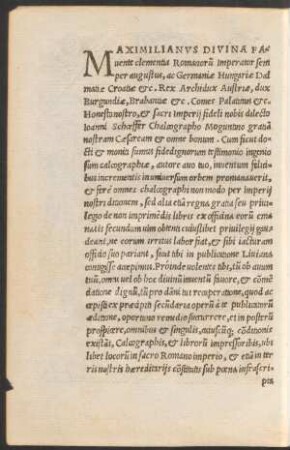 MAXIMILIANVS DIVINA FA
uente clementia Romanorũ Imperator sem
per augustus, ac Germaniæ Hungariæ Dal
matiæ Croatiæ &c. Rex Archidux Austriæ, dux
Burgundiæ, Brabantiæ &c. Comes Palatinus &c.
Honesto nostro, & sacri Imperij fideli nobis dilecto
Ioanni Schœffer Chalcographo Moguntino gratiã
nostram Cæsaream & omne bonum. Cum sicut do
cti & moniti sumus fidedignorum testimonio ingenio
sum calcographiæ, autore auo tuo, inuentum felici
bus incrementis in vniuersum orbem promanauerit,
& fere omnes chalcographi non modo per imperij
nostri ditionem, sed alia etiã regna gratia seu priui
legio de non imprimẽdis libris ex officina eorũ ema
natis secundum uim obtenti cuiuslibet priuilegij gau
deant, ne eorum irritus labor fiat, & sibi iacturam
officio suo pariant, sicut tibi in publicatione Liuiana
contigisse accepimus. Proinde uolentes tibi, tũ ob auum
tuũ, omni uel ob hoc diuinũ inuentũ fauore, & cõmẽ
datione dignũ, tũ pro dãni tui recuperatione, quod ac
cepisti ex præcipiti secũdaria opera ũ & publicatorũ
æditione, oportuno remedio succurrere, et in posterũ
prospicere, omnibus & singulis, cuiuscũq; cõditionis
existãt, Calcographis, & librorũ impressoribus, ubi
libet locorũ in sacro Romano imperio, & etiã in ter
ris nostris hæreditarijs cõstitutis sub pœna infrascri
pta